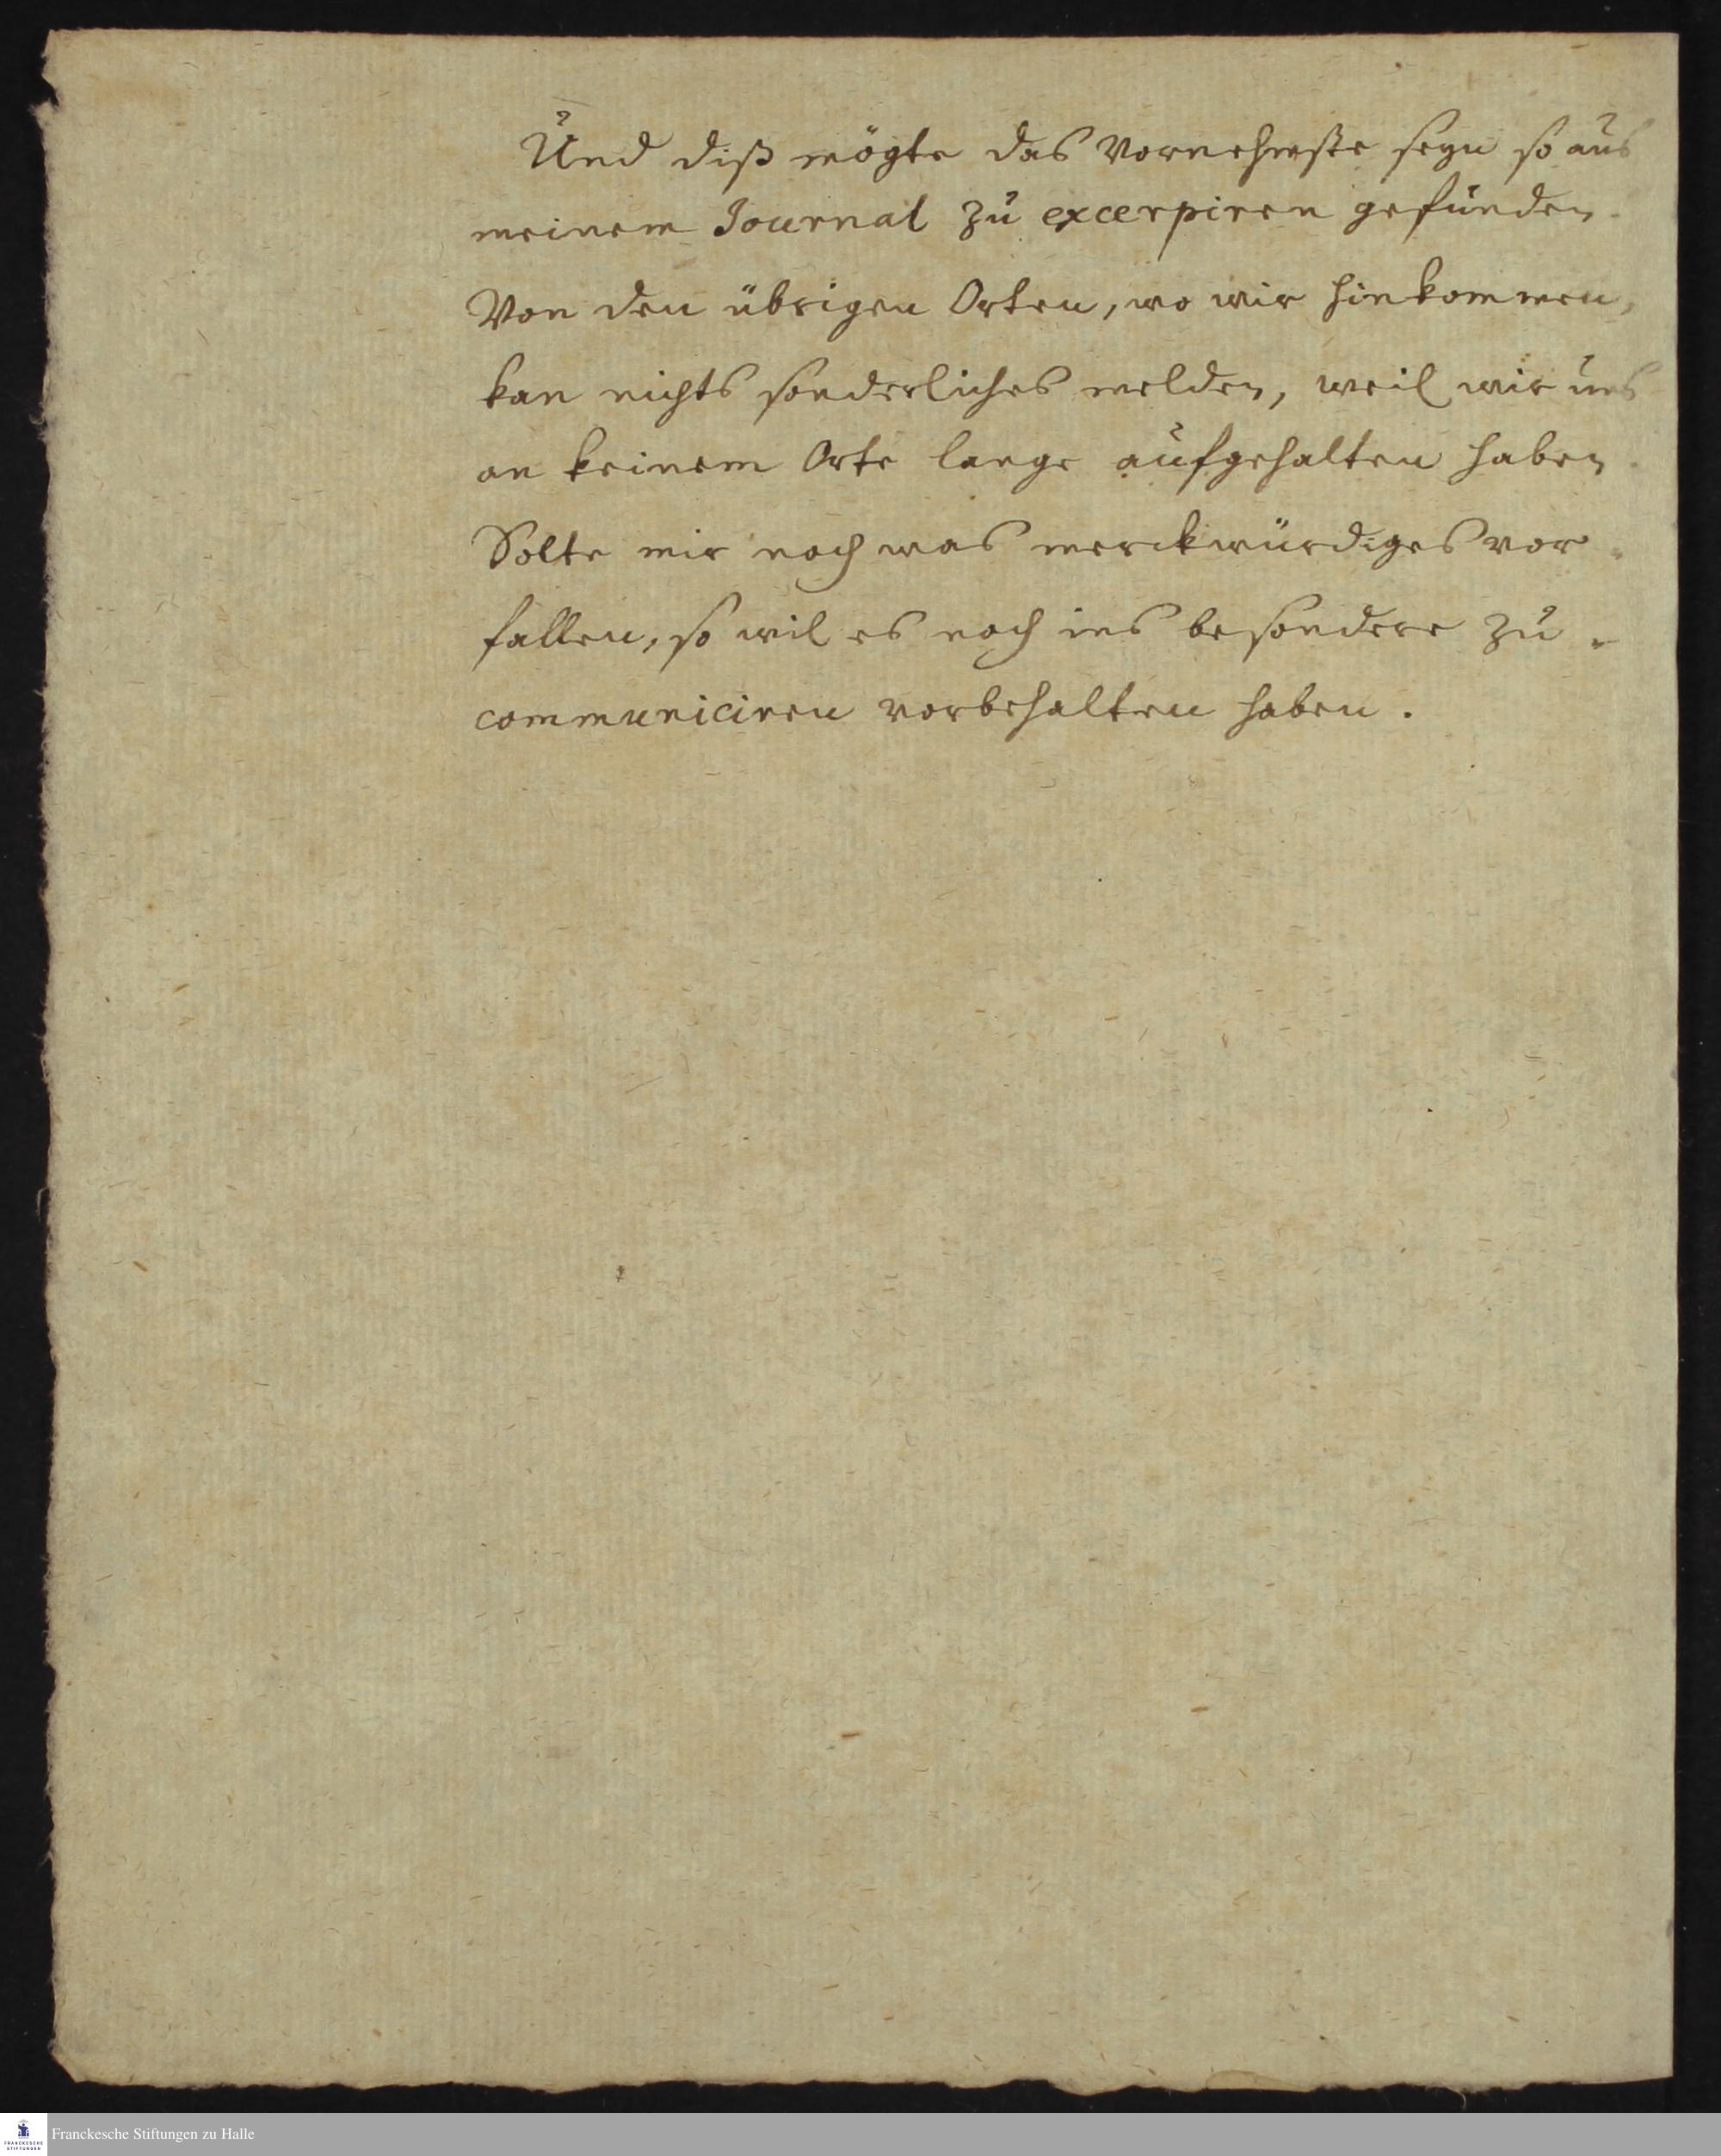 Und diß mögte das Vornehmste seyn so aus
meinem Journal zu excerpiren gefunden.
Von den übrigen Orten, wo wir hinkommen,
kan nichts sonderliches melden, weil wir uns
an keinem Orte lange aufgehalten haben.
Solte mir noch was merckwürdiges vor-
fallen, so wil es noch ins besondere zu-
communiciren vorbehalten haben.
FRANCKESCHE
STIFTUNGEN
Franckesche Stiftungen zu Halle